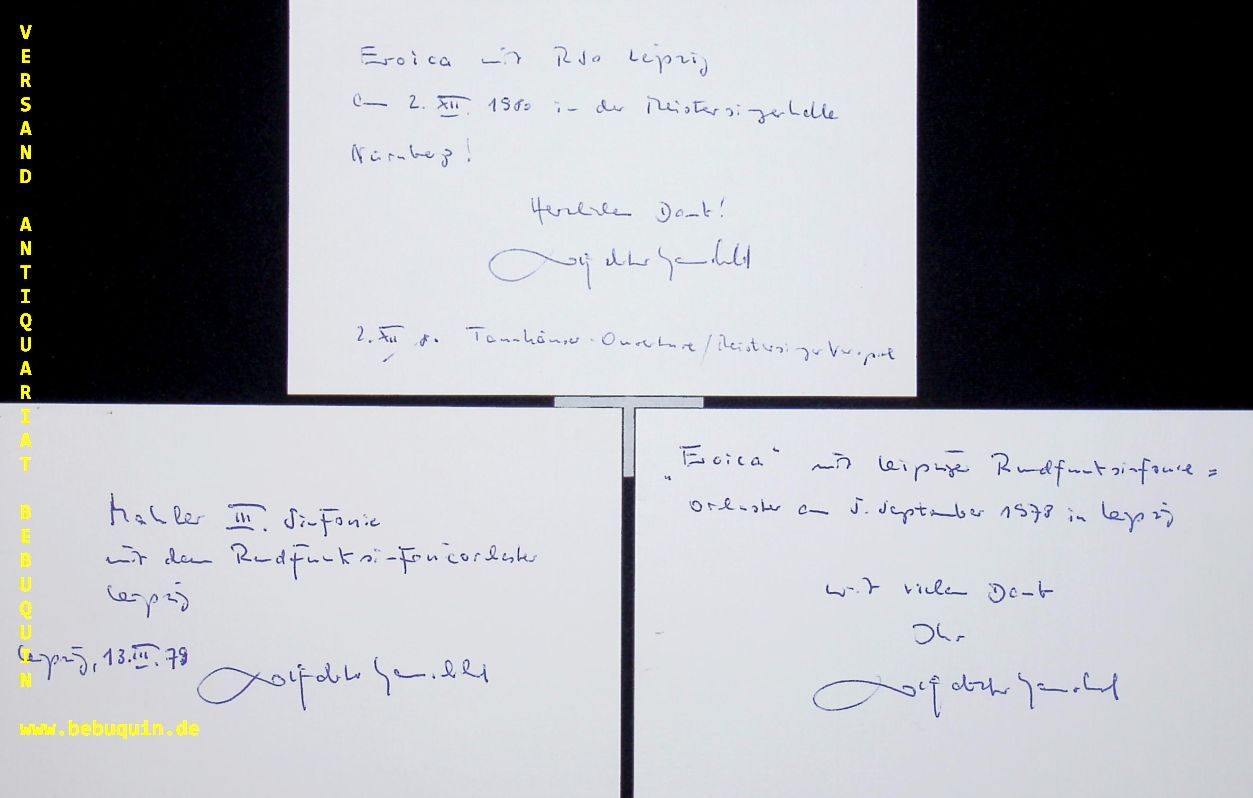 VERSAND ANTIQUARIAT BEBUQUIN
www.bebuquin.de
Eroica mit RSO Leipzig
am 2. XII. 1980 in der Meistersingerhalle
Nürnberg!
Herzlichen Dank!
Wolf-Dieter Hauschild
2. XII 80. Tannhäuser-Ouvertüre/Meistersinger Vorspiel
Mahler III. Sinfonie
mit dem Rundfunksinfonieorchester
Leipzig
Leipzig, 13.III.79
Wolf-Dieter Hauschild
„Eroica“ mit Leipziger Rundfunksinfonie=
orchester am 5. September 1978 in Leipzig
mit vielem Dank
Ihr
Wolf-Dieter Hauschild